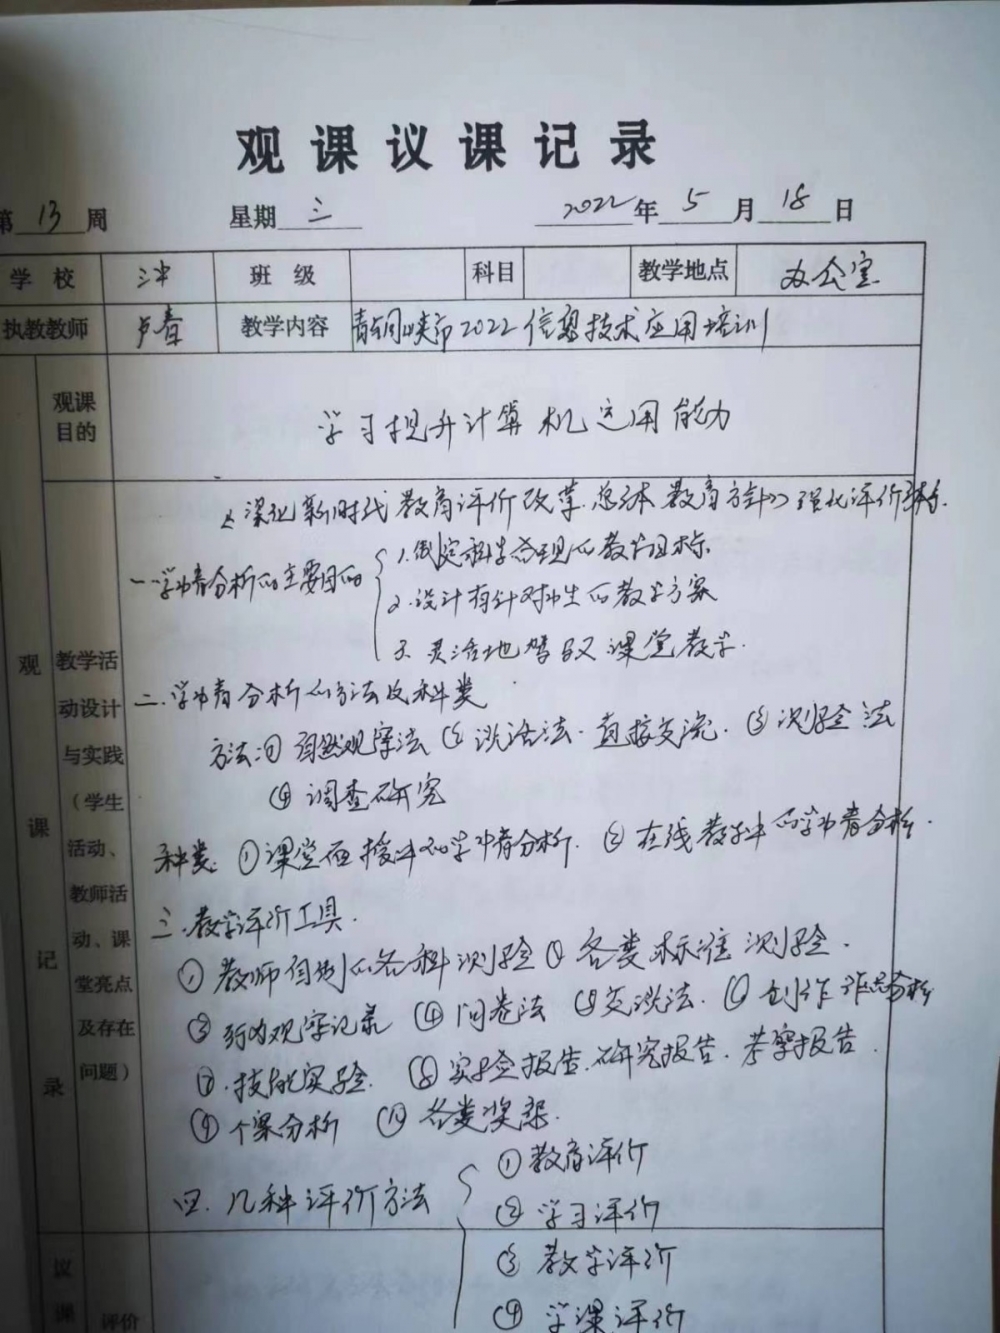 观课议课记录
第 13 周 星期 三 2022 年 5 月 18 日
学校 三中 班级 科目 教学地点 办公室
执教教师 卢春 教学内容 青铜峡市2022信息技术应用培训
观课目的 学习提升计算机运用能力
观课记录
教学活动设计与实践（学生活动、教师活动、课堂亮点及存在问题）
《深化新时代教育评价改革总体教育方针》强化评价
一.学情分析的主要目的
1.制定科学合理的教学目标
2.设计有针对性的教学方案
3.灵活地驾驭课堂教学.
二.学情分析的方法及种类
方法:①自然观察法 ②谈话法.直接交流. ③测验法
④调查研究
种类: ①课堂面授中的学情分析. ②在线教学中的学情分析.
三.教学评价工具.
① 教师自制的各科测验 ② 各类标准测验.
③ 行为观察记录 ④ 问卷法 ⑤交谈法. ⑥ 创作作品分析
⑦.技能实验. ⑧ 实验报告.研究报告.考察报告.
⑨ 个案分析 ⑩ 各类奖
四.几种评价方法
① 教育评价
② 学习评价
③ 教学评价
④ 学课评价
议课
评价